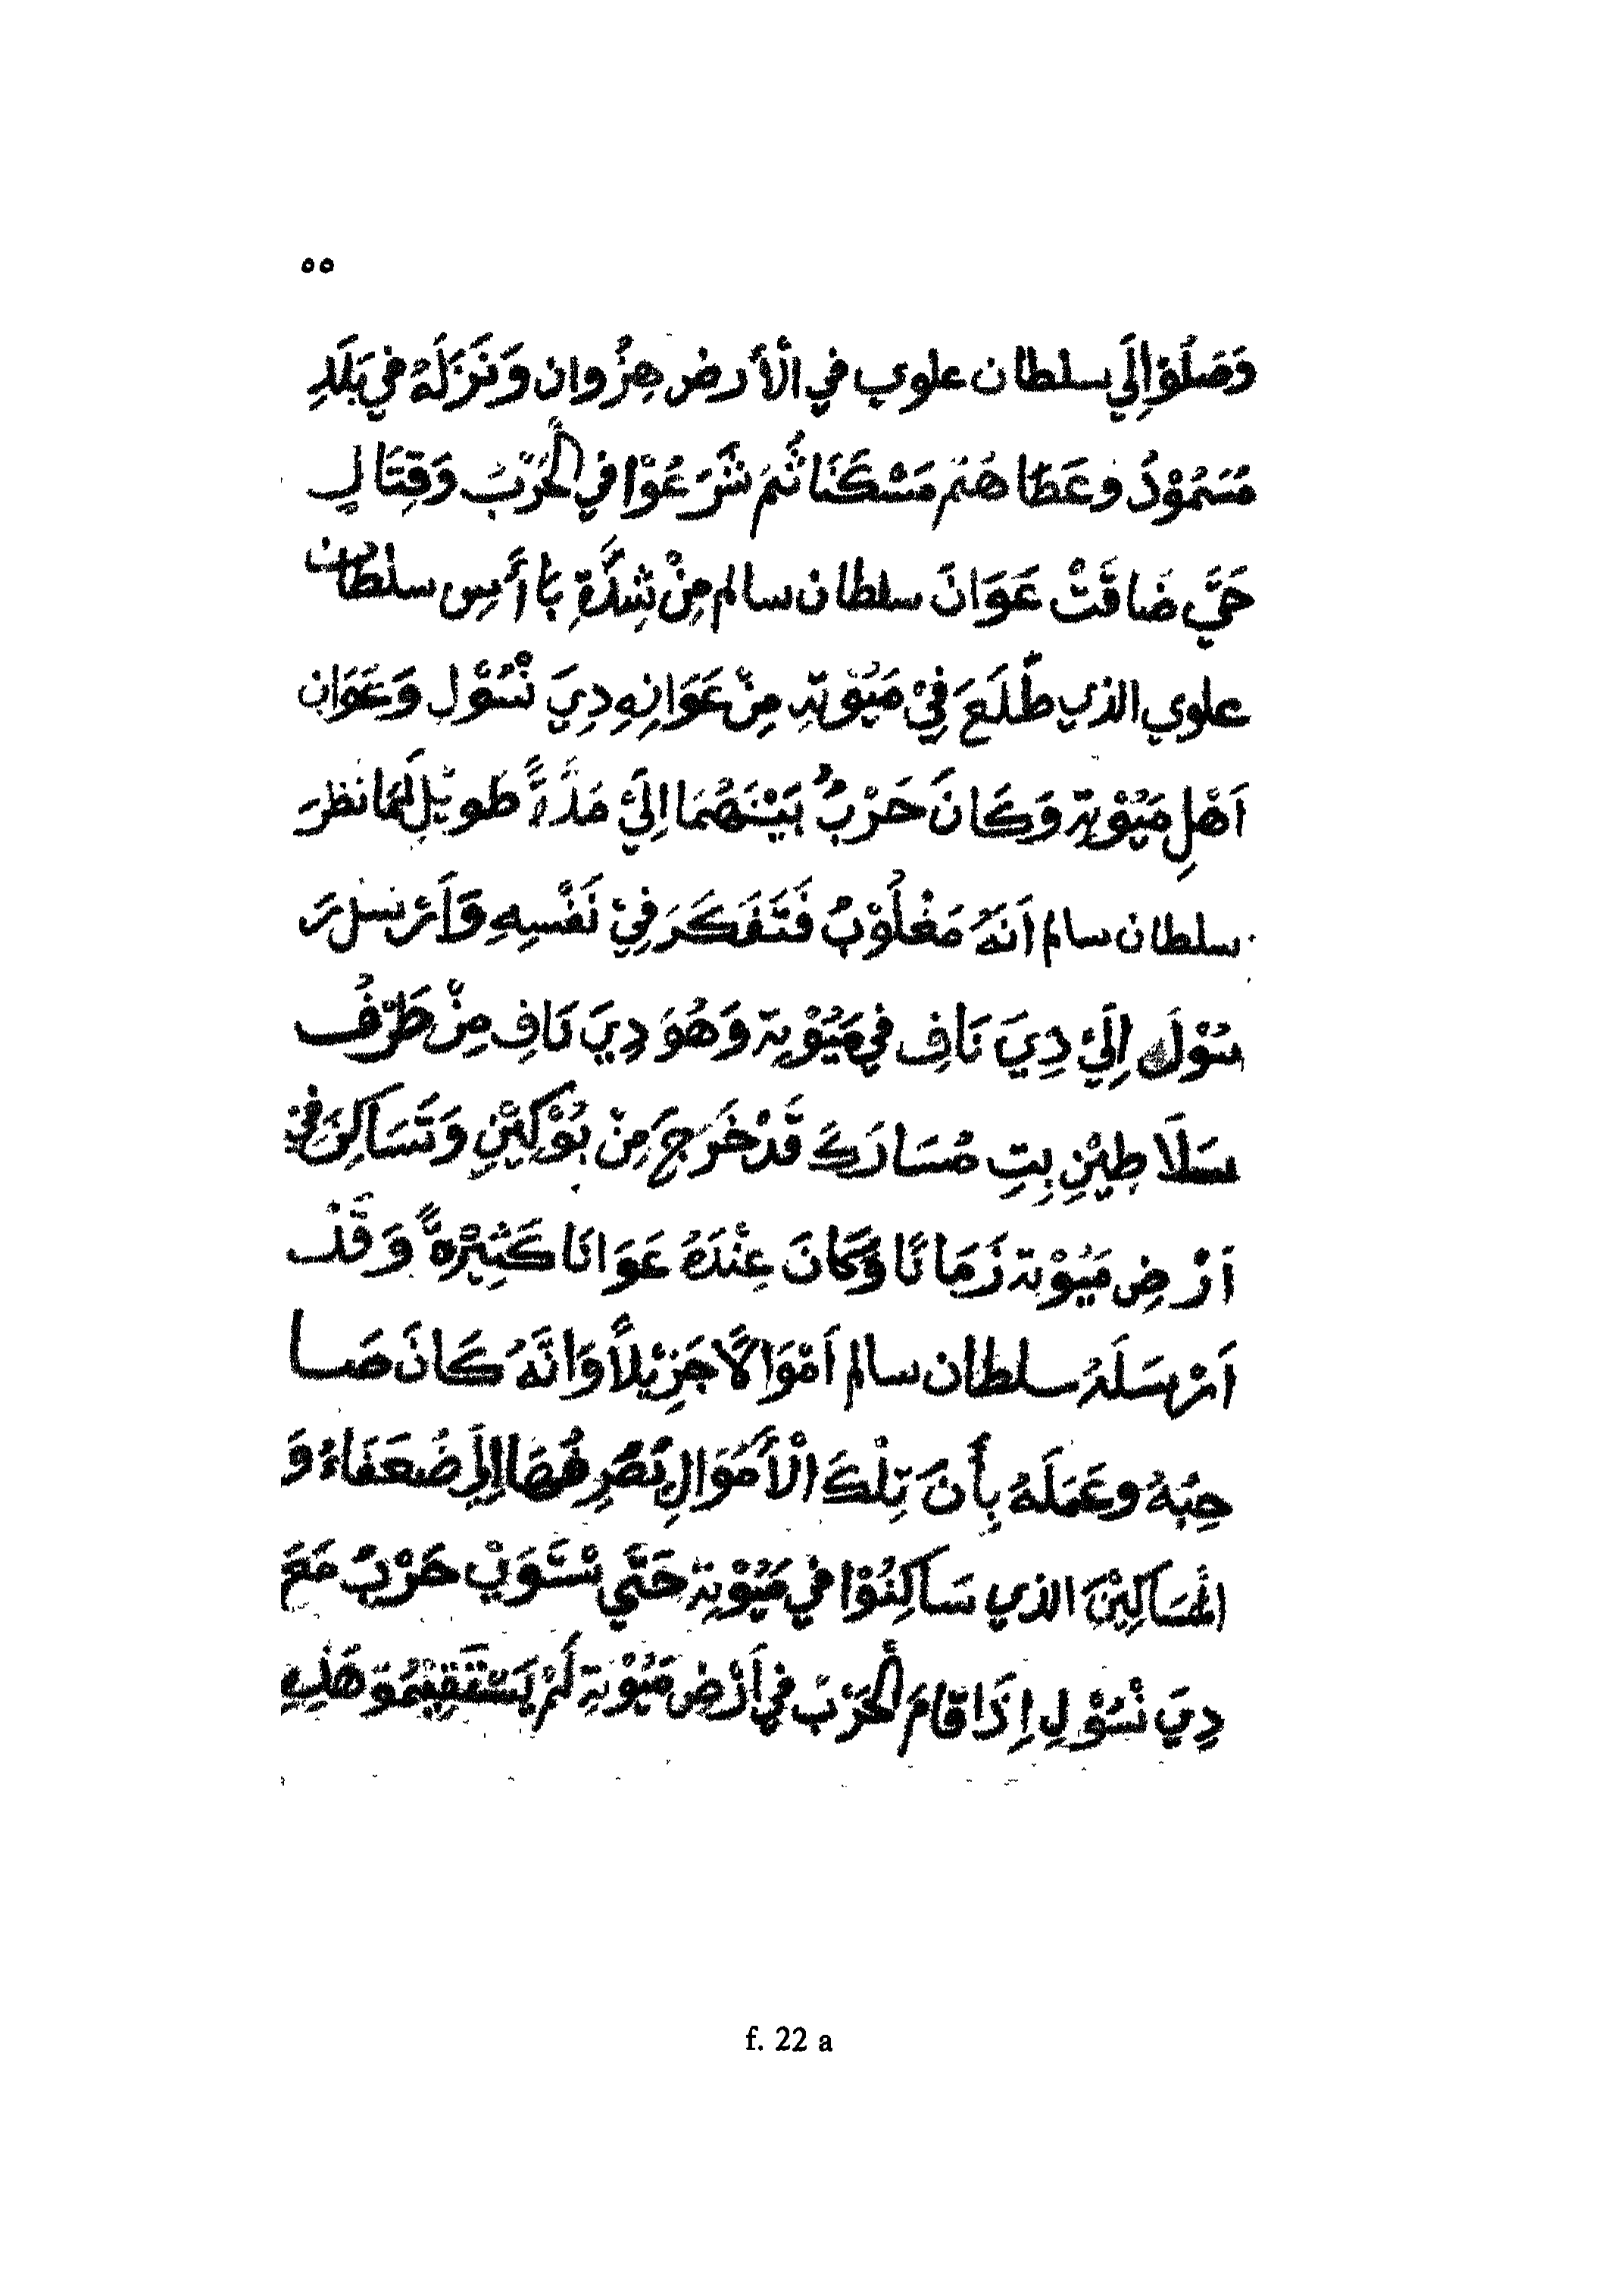 ٥٥
وَصَلُوْا اِلَي سلطان علوي في الْأَرض هِزُوان وَنَزَلَهُ في بَلَدِ
مُسَمُوْدُ وعَطَا هُمْ مَسْكَنَا ثُمَ شَرَعُوْا في الْحَرْبُ وَقِتَالِ
حَتَّي ضَاقَتْ عَوَانَ سلطان سالم مِنْ شِدَّةِ بَاأَسِ سلطان
علوي الذي طَلَعَ فِيْ مَيُوْتِةِ مِنْ عَوَانِهِ دِيَ نْسُوْلِ وَعَوَانِ
اَهْلِ مَيُوْتِة وَكَانَ حَرْبٌ بَيْنَهُمَا اِلَيْ مَدَّةً طويْلٍ لَمَا نظرَ
سلطان سالم اَنَهُ مَغْلُوْبٌ فَتَفَكَرَ فِيْ نَفْسِهِ وَاَرْسَلَ رَ
سُوْلَه اِلَيْ دِيَ نَافِ في مَيُوْتِة وَهُوَ دِيَ نَافِ مِنْ طَرْفُ
سَلَاطِيْنِ بِتِ مُسَارَكَ قَدْ خَرَجَ مِنْ بُوْكِيْنِ وَتَسَاكِنَ فِيْ
اَرْضِ مَيُوْتة زَمَانًا وَكَانَ عِنْدَهُ عَوَانَا كَثِيْرَةً وَقَدْ
اَرْسَلَهُ سلطان سالم اَمْوَالًا جَزِيْلاً وَانَّهُ كَانَ صَا
حِبُهُ وعَمَلَهُ بِأَنَ تِلْكَ الْأَمْوَالِ نُصْرِفُهَا اِلَي ضُعَفَاءُ وَ
الْمَسَاكِيْنَ الذي سَاكِنُوْا في مَيُوْتِة حَتَّي نْسَوِيْ حَرْبٌ مَعَ
دِيَ نْسُوْلِ اِذَا قَامَ الْحَرْبُ في اَرْضِ مَيُوْتِة لَمْ يَسْتَقِيْمُوَ هَذِهِ
f. 22 a